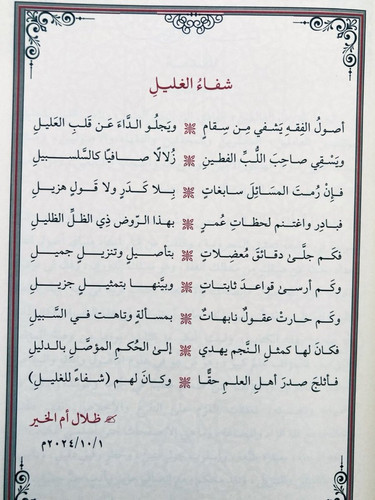 شفاءُ الغليلِ
أصولُ الفِقهِ يَشفي مِن سِقامٍ ❊ ويَجلُو الدَّاءَ عَن قَلبِ العَليلِ
ويَسْقِي صاحِبَ اللُّبِّ الفطينِ ❊ زُلالًا صافيًا كالسَّلسَبيلِ
فإنْ رُمتَ المَسَائِلَ سابغاتٍ ❊ بِلا كَدَرٍ ولا قَولٍ هزيلِ
فبادِر واغتنم لحظاتِ عُمرٍ ❊ بهذا الرَّوضِ ذِي الظلِّ الظليلِ
فكَم جلَّىٰ دقائقَ مُعضِلاتٍ ❊ بتأصيلٍ وتنزيلٍ جميلِ
وكَم أرسىٰ قواعدَ ثابتاتٍ ❊ وبيَّنها بتمثيلٍ جزيلِ
وكَم حارتْ عقولٌ نابهاتٌ ❊ بمسألةٍ وتاهت في السَّبيلِ
فكانَ لها كمثلِ النَّجمِ يهدي ❊ إلىٰ الحُكمِ المؤصَّلِ بالدليلِ
فأثلجَ صدرَ أهلِ العلمِ حقًّا ❊ وكانَ لهم (شفاءً للغليلِ)
✍ ظلال أم الخير
٢٠٢٤/١٠/١م